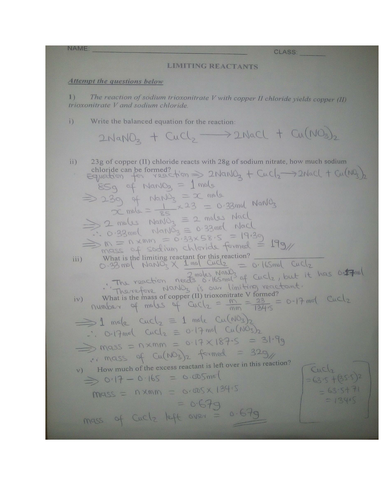 NAME:
CLASS:
LIMITING REACTANTS
Attempt the questions below
1) The reaction of sodium trioxonitrate V with copper II chloride yields copper (II)
trioxonitrate V and sodium chloride
i) Write the balanced equation for the reaction.
2NaNO₃ + CuCl₂ → 2NaCl + Cu(NO₃)₂
ii) 23g of copper (II) chloride reacts with 28g of sodium nitrate, how much sodium
chloride can be formed?
Equation for reaction ⇒ 2NaNO₃ + CuCl₂ → 2NaCl + Cu(NO₃)₂
85g of NaNO₃ = 1 mole
⇒ 23g of NaNO₃ = x mole
x mole = 1/85 × 23 = 0.33mol NaNO₃
⇒ 2 moles NaNO₃ ≡ 2 moles NaCl
∴ 0.33mol NaNO₃ ≡ 0.33mol NaCl
⇒ m = n×mm = 0.33×58.5 = 19.3g
mass of sodium chloride formed = 19g
iii) What is the limiting reactant for this reaction?
0.33mol NaNO₃ × 1 mol CuCl₂ / 2 moles NaNO₃ = 0.165mol CuCl₂
∴ The reaction needs 0.165mol of CuCl₂, but it has 0.17mol
Therefore NaNO₃ is our limiting reactant.
iv) What is the mass of copper (II) trioxonitrate V formed?
number of moles of CuCl₂ = m/mm = 23/134.5 = 0.17mol CuCl₂
⇒ 1 mole CuCl₂ ≡ 1 mole Cu(NO₃)₂
∴ 0.17mol CuCl₂ ≡ 0.17mol Cu(NO₃)₂
⇒ mass = n×mm = 0.17×187.5 = 31.9g
∴ mass of Cu(NO₃)₂ formed = 32g
v) How much of the excess reactant is left over in this reaction?
⇒ 0.17 − 0.165 = 0.005mol
mass = n×mm = 0.005×134.5
= 0.67g
mass of CuCl₂ left over = 0.67g
CuCl₂
= 63.5+(35.5)2
= 63.5+71
= 134.5